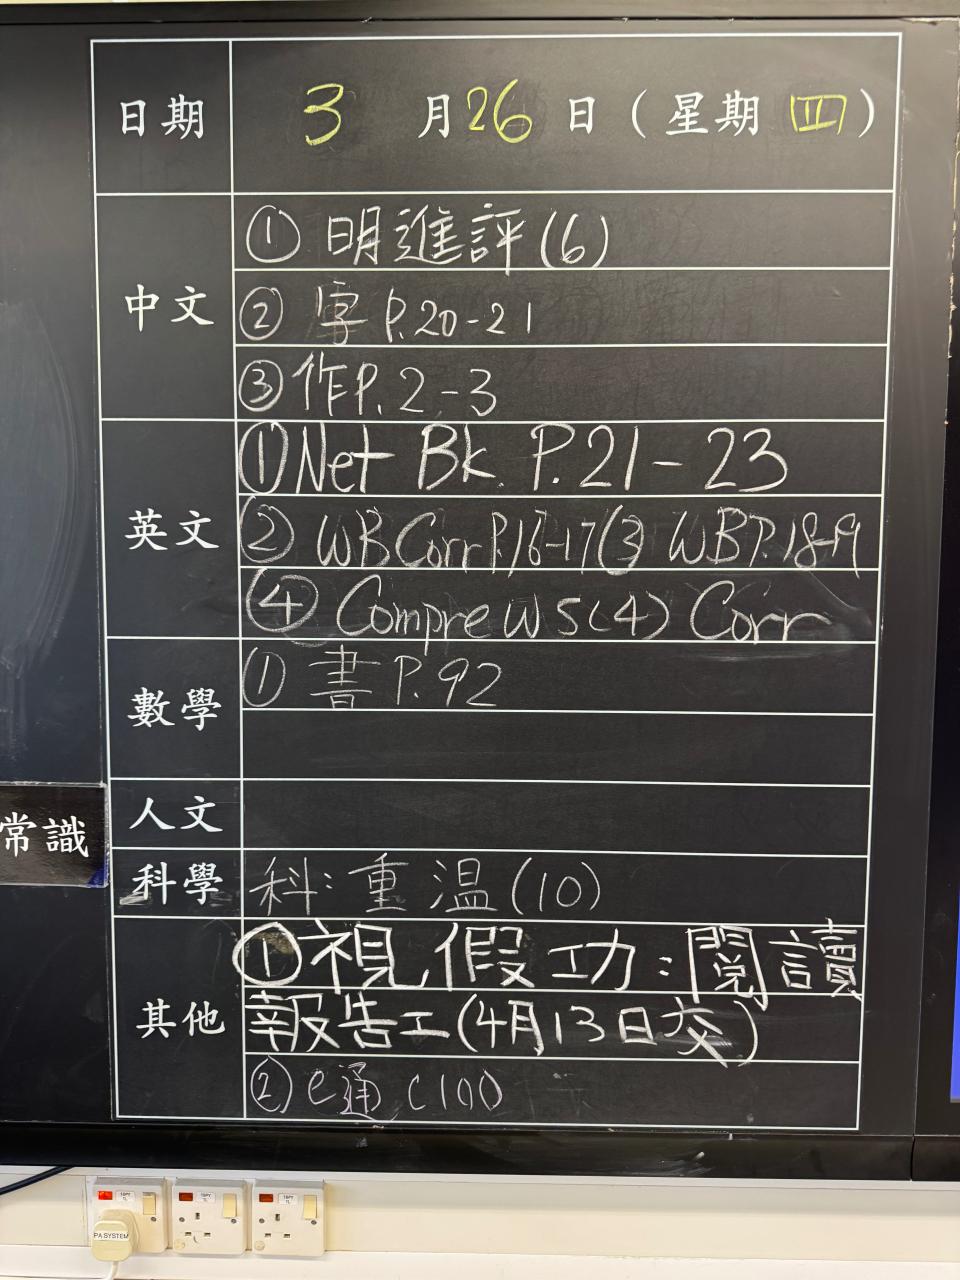 日期 3月26日(星期四)
中文
① 明進評(6)
② 字 P.20-21
③ 作P.2-3
英文
① Net Bk P.21-23
② WB Corr P.16-17 ③ WB P.18-19
④ Compre WS(4) Corr
數學
① 書 P.92
人文
常識
科學
科:重溫(10)
其他
① 視假功:閱讀
報告工(4月13日交)
② e通
PA SYSTEM